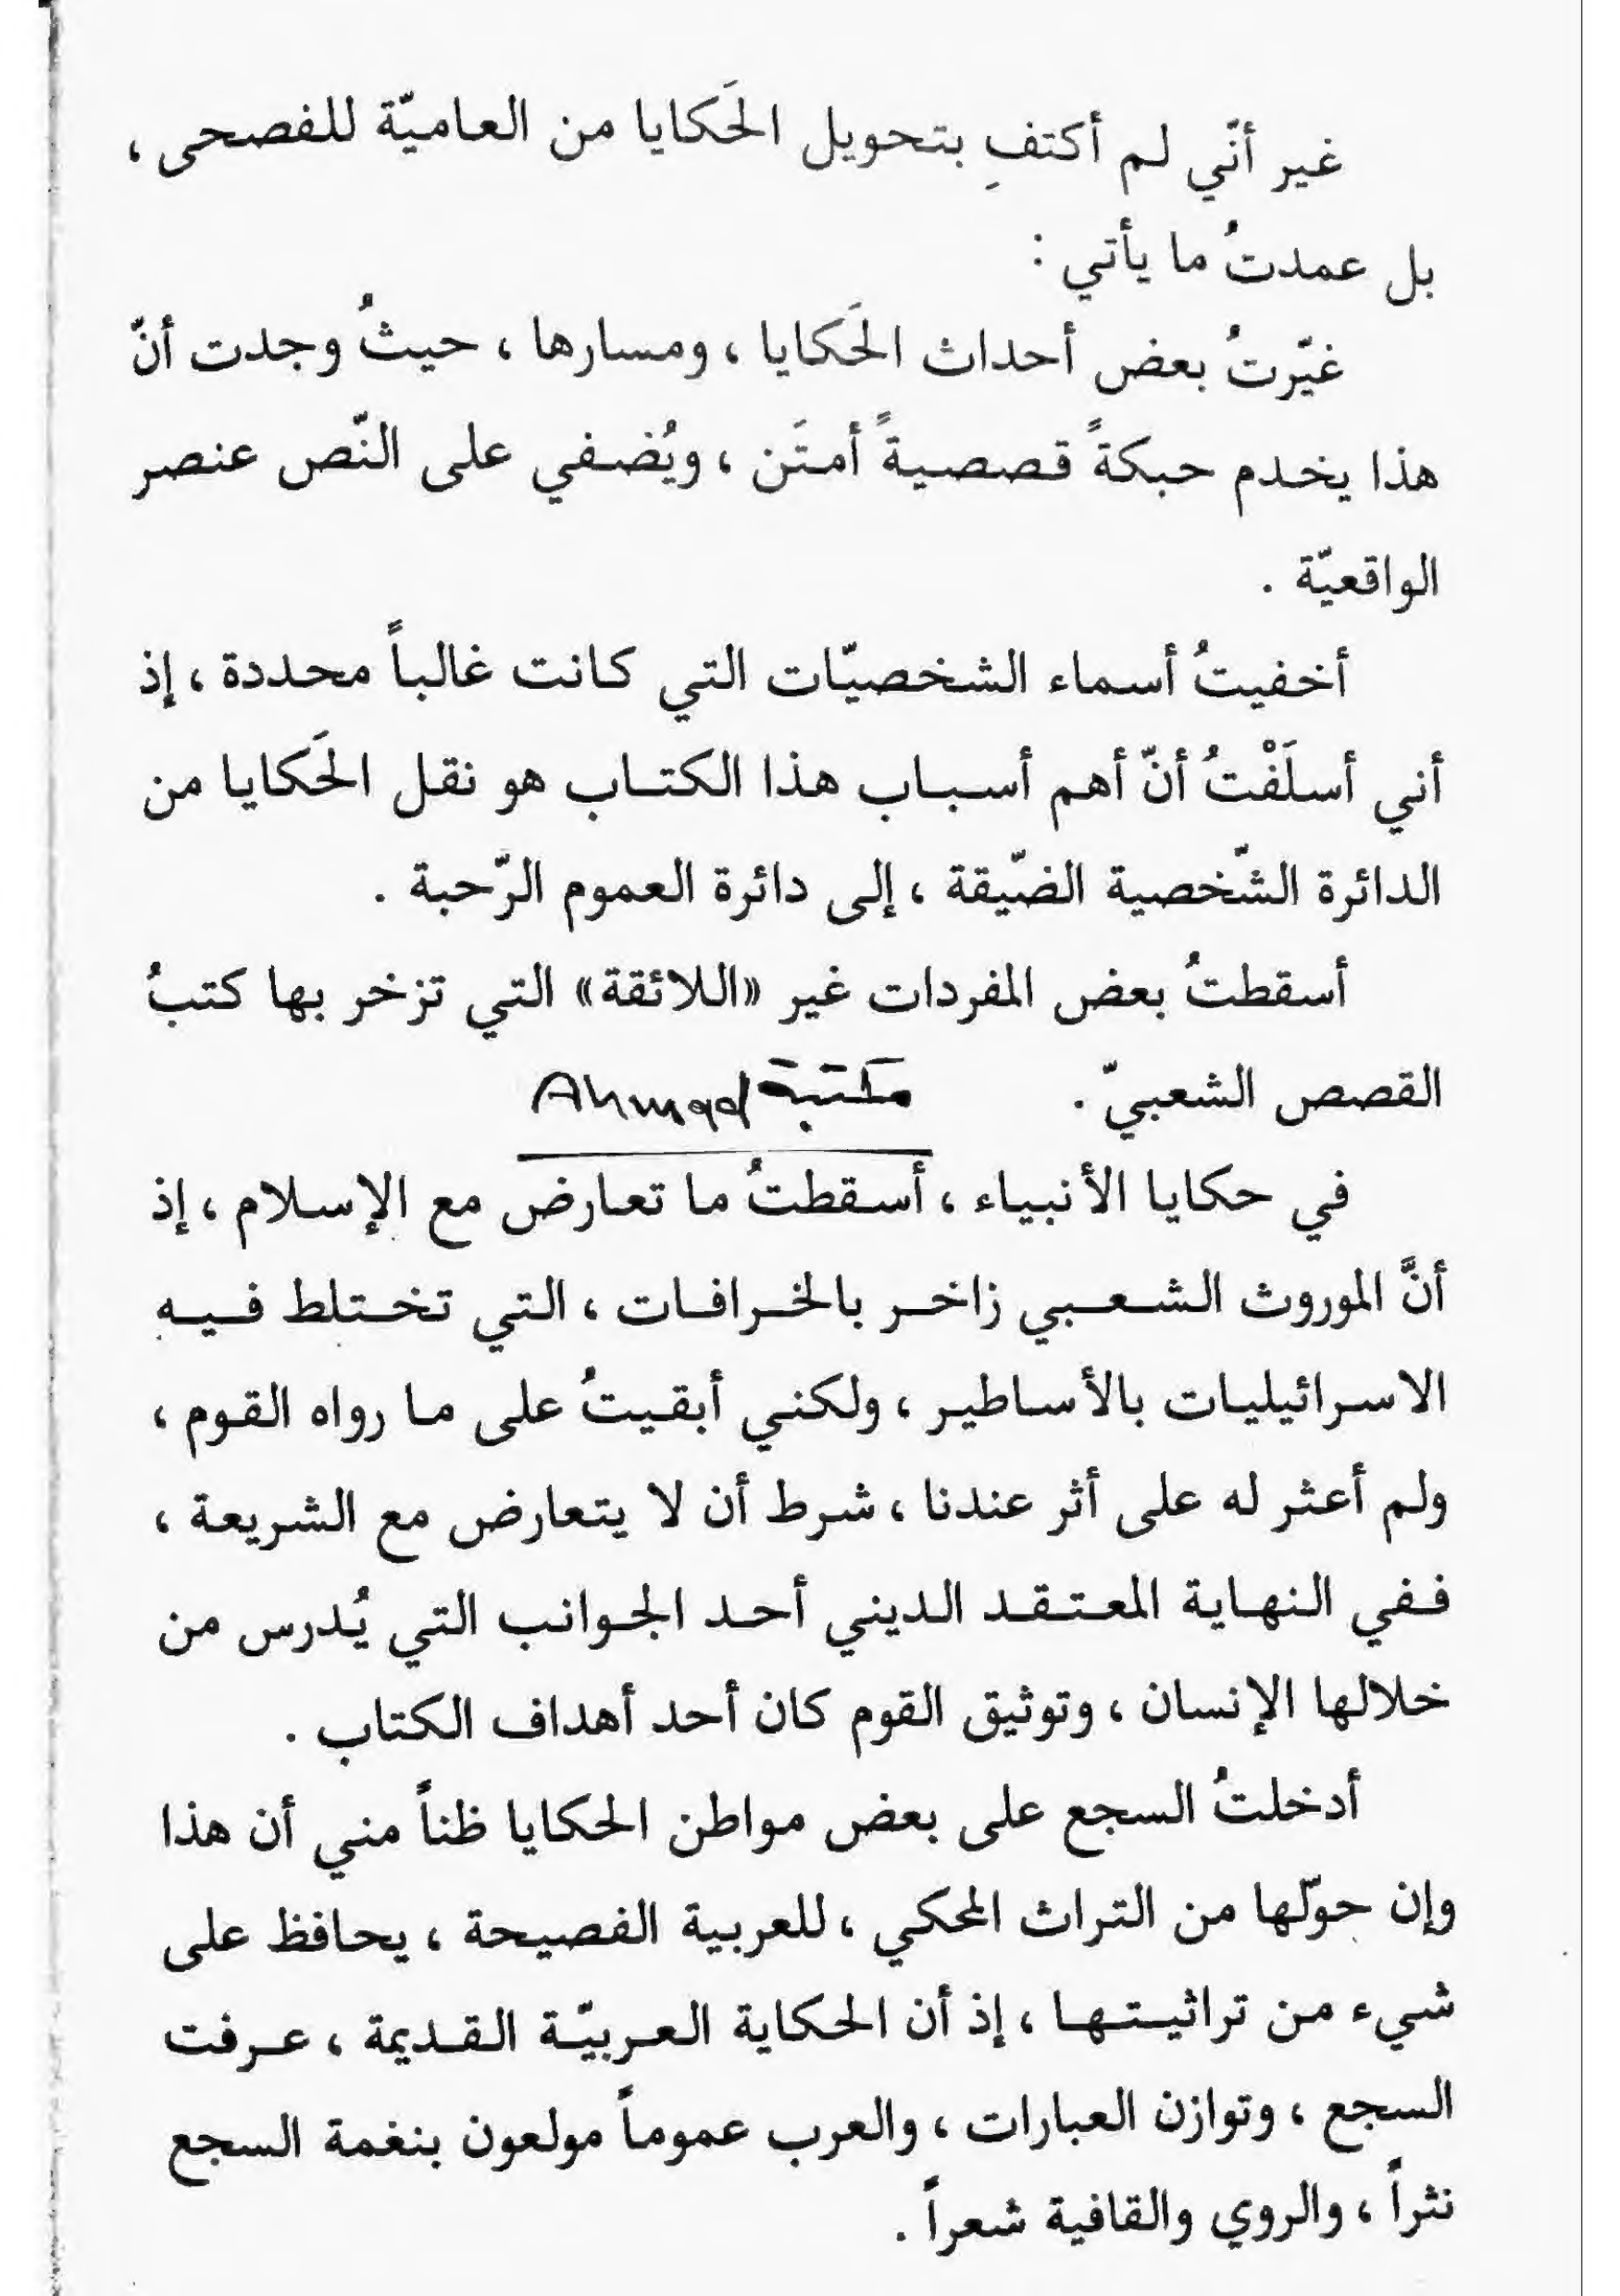 غير أنّي لم أكتفِ بتحويل الحَكايا من العاميّة للفصحى ،
بل عمدتُ ما يأتي :
غيّرتُ بعض أحداث الحَكايا ، ومسارها ، حيثُ وجدت أنّ
هذا يخدم حبكةً قصصيةً أمتَن ، ويُضفي على النّص عنصر
الواقعيّة .
أخفيتُ أسماء الشخصيّات التي كانت غالباً محددة ، إذ
أني أسلَفْتُ أنّ أهم أسباب هذا الكتاب هو نقل الحَكايا من
الدائرة الشّخصية الضّيقة ، إلى دائرة العموم الرّحبة .
أسقطتُ بعض المفردات غير «اللائقة» التي تزخر بها كتبُ
القصص الشعبيّ .
مكتبة Ahmad
في حكايا الأنبياء ، أسقطتُ ما تعارض مع الإسلام ، إذ
أنَّ الموروث الشعبي زاخر بالخرافات ، التي تختلط فيه
الاسرائيليات بالأساطير ، ولكني أبقيتُ على ما رواه القوم ،
ولم أعثر له على أثر عندنا ، شرط أن لا يتعارض مع الشريعة ،
ففي النهاية المعتقد الديني أحد الجوانب التي يُدرس من
خلالها الإنسان ، وتوثيق القوم كان أحد أهداف الكتاب .
أدخلتُ السجع على بعض مواطن الحكايا ظناً مني أن هذا
وإن حوّلها من التراث المحكي ، للعربية الفصيحة ، يحافظ على
شيء من تراثيتها ، إذ أن الحكاية العربيّة القديمة ، عرفت
السجع ، وتوازن العبارات ، والعرب عموماً مولعون بنغمة السجع
نثراً ، والروي والقافية شعراً .